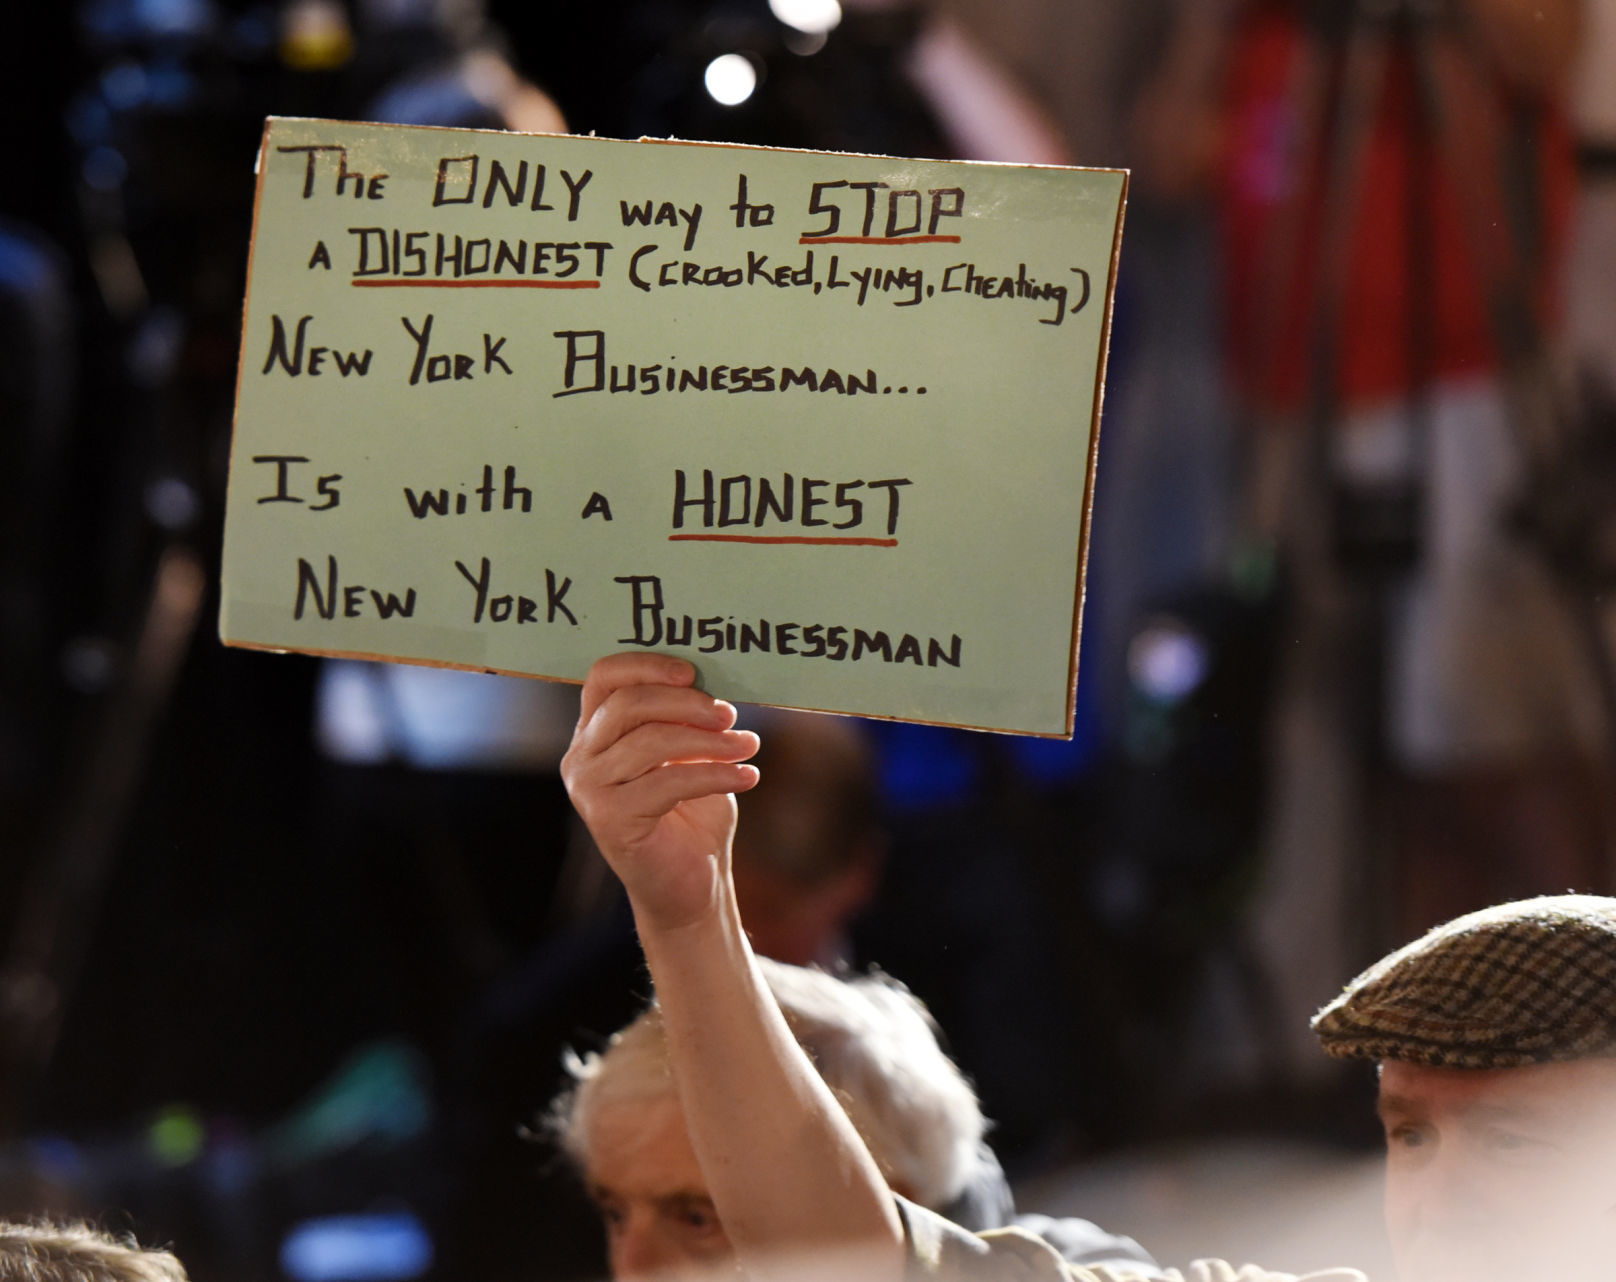 The ONLY way to STOP
A DISHONEST (CROOKED, LYING, CHEATING)
NEW YORK BUSINESSMAN...
IS with A HONEST
NEW YORK BUSINESSMAN